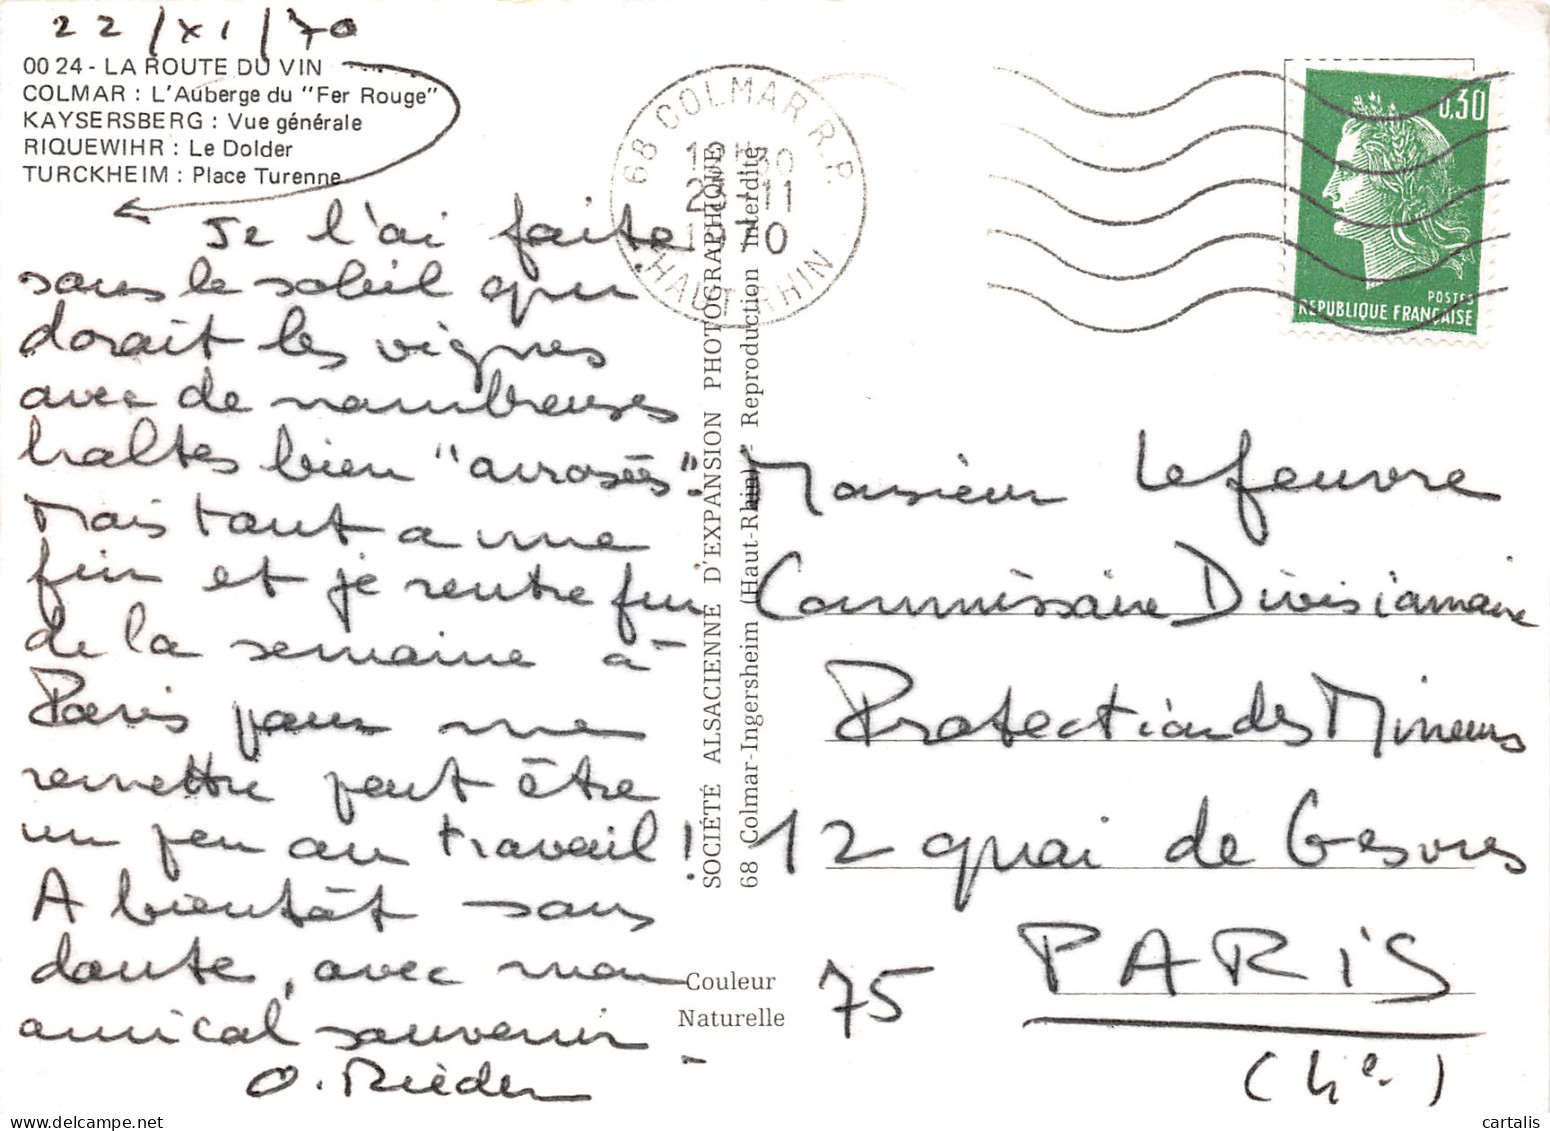 22/XI/70
0024 - LA ROUTE DU VIN
COLMAR : L'Auberge du "Fer Rouge"
KAYSERSBERG : Vue générale
RIQUEWIHR : Le Dolder
TURCKHEIM : Place Turenne
Je l'ai faite
sous le soleil qui
dorait les vignes
avec de nombreuses
haltes bien "arrosées".
Mais tout a une
fin et je rentre fin
de la semaine à
Paris pour me
remettre peut être
un peu au travail !
A bientôt sans
doute, avec mon
amical souvenir -
O. Rieder
68 COLMAR R.P.
30
-11
1970
HAUT-RHIN
SOCIÉTÉ ALSACIENNE D'EXPANSION PHOTOGRAPHIQUE
68 Colmar-Ingersheim (Haut-Rhin) - Reproduction interdite
Couleur
Naturelle
0,30
POSTES
REPUBLIQUE FRANÇAISE
Monsieur Lefeuvre
Commissaire Divisionnaire
Protection des Mineurs
12 quai de Gesvres
75 PARIS
(4e.)
cartalis